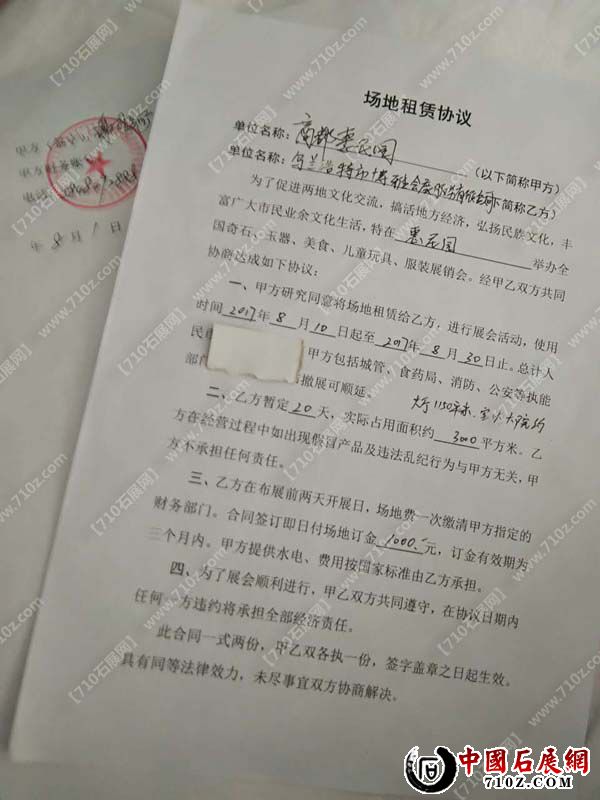 场地租赁协议
单位名称: 商都惠农园 (以下简称甲方)
单位名称: 乌兰浩特市博雅会展服务有限公司 下简称乙方)
为了促进两地文化交流，搞活地方经济，弘扬民族文化，丰
富广大市民业余文化生活，特在 惠农园 举办全
国奇石、玉器、美食、儿童玩具、服装展销会。经甲乙双方共同
协商达成如下协议：
一、甲方研究同意将场地租赁给乙方，进行展会活动，使用
时间 2017年 8 月 10 日起至 2017年 8 月 30 日止。总计人
民币 甲方包括城管、食药局、消防、公安等执能
部门 后撤展可顺延。 大厅1150平米
二、乙方暂定 20 天，实际占用面积约 3000 平方米。乙
方在经营过程中如出现假冒产品及违法乱纪行为与甲方无关，甲
方不承担任何责任。
三、乙方在布展前两天开展日，场地费一次缴清甲方指定的
财务部门。合同签订即日付场地订金 1000.- 元，订金有效期为
三个月内。甲方提供水电、费用按国家标准由乙方承担。
四、为了展会顺利进行，甲乙双方共同遵守，在协议日期内
任何一方违约将承担全部经济责任。
此合同一式两份，甲乙双各执一份，签字盖章之日起生效。
具有同等法律效力，未尽事宜双方协商解决。
甲方
甲方
电话
年 8 月 1 日
【710石展网】 www.710z.com
中國石展網
710Z.COM